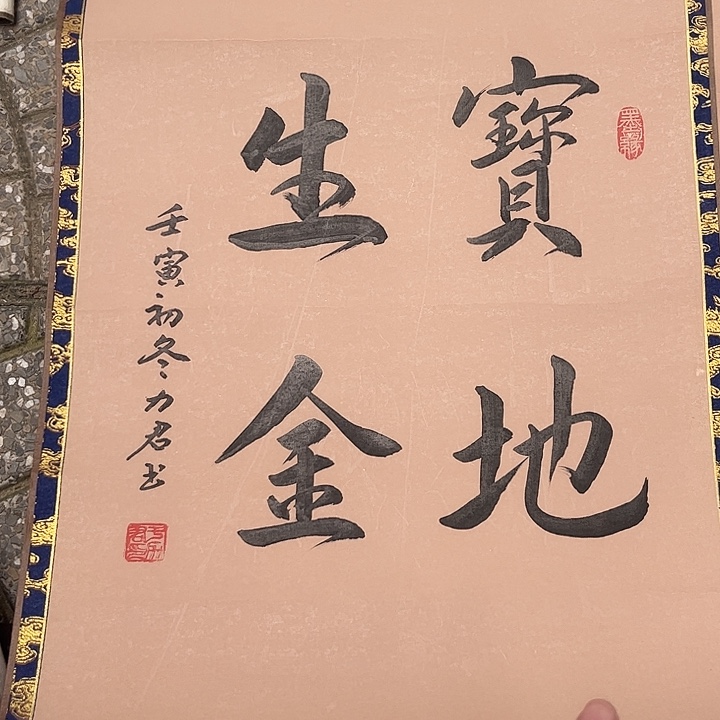 寶地
生金
壬寅初冬力君书